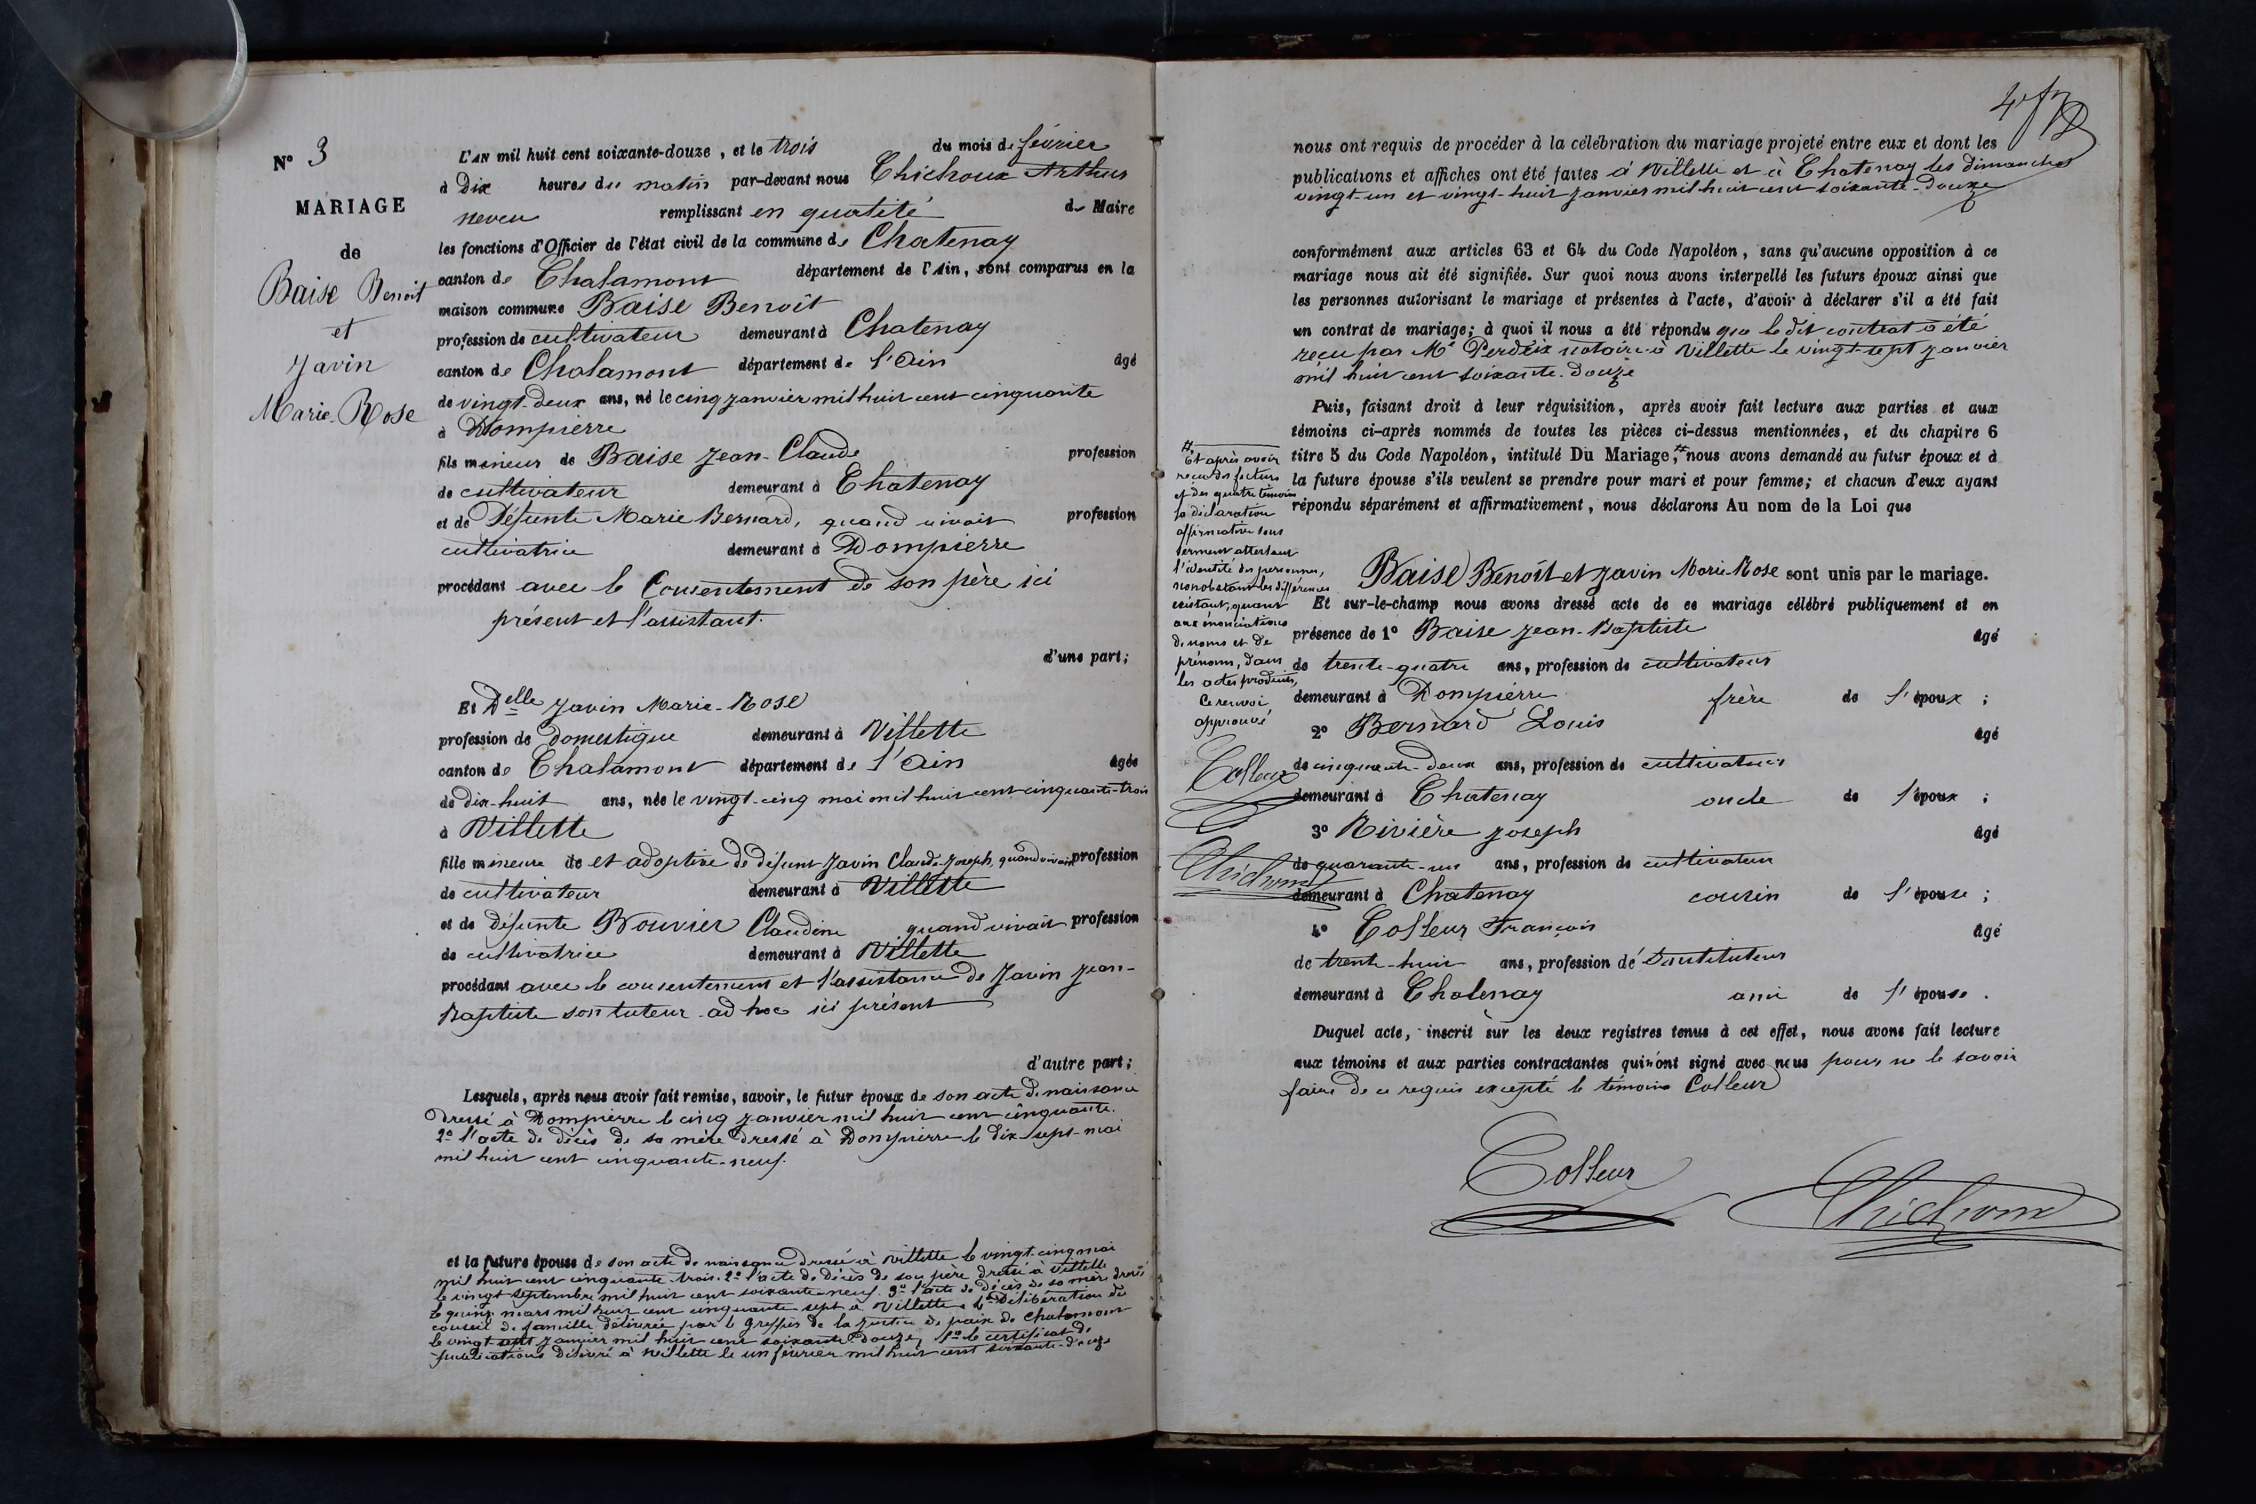 N° 3
MARIAGE
de
Baise Benoit
et
Javin
Marie-Rose
L'AN mil huit cent soixante-douze, et le trois du mois de février
à Dix heures du matin par-devant nous Chichoux Arthur
neveu remplissant en qualité de Maire
les fonctions d'Officier de l'état civil de la commune de Chatenay
canton de Chalamont département de l'Ain, sont comparus en la
maison commune Baise Benoît
profession de cultivateur demeurant à Chatenay
canton de Chalamont département de l'Ain âgé
de vingt-deux ans, né le cinq janvier mil huit cent cinquante
à Dompierre
fils mineur de Baise Jean-Claude profession
de cultivateur demeurant à Chatenay
et de Défunte Marie Bernard, quand vivait profession
cultivatrice demeurant à Dompierre
procédant avec le Consentement de son père ici
présent et l'assistant.
d'une part;
Et Delle Javin Marie-Rose
profession de Domestique demeurant à Villette
canton de Chalamont département de l'Ain âgée
de dix-huit ans, née le vingt-cinq mai mil huit cent cinquante-trois
à Villette
fille mineure de et adoptive de défunt Javin Claude-Joseph, quand vivait profession
de cultivateur demeurant à Villette
et de défunte Bouvier Claudine quand vivait profession
de cultivatrice demeurant à Villette
procédant avec le consentement et l'assistance de Javin Jean-
Baptiste son tuteur ad hoc ici présent
d'autre part;
Lesquels, après nous avoir fait remise, savoir, le futur époux de son acte de naissance
dressé à Dompierre le cinq janvier mil huit cent cinquante.
2° l'acte de décès de sa mère dressé à Dompierre le dix-sept-mai
mil huit cent cinquante-neuf.
et la future épouse de son acte de naissance dressé à Villette le vingt-cinq mai
mil huit cent cinquante-trois. 2° l'acte de décès de son père dressé à Villette
le vingt septembre mil huit cent soixante-neuf. 3° l'acte de décès de sa mère dressé
le quinze mars mil huit cent cinquante sept à Villette. 4° Délibération du
conseil de famille délivrée par le greffier de la justice de paix de Chalamont
le vingt-sept janvier mil huit cent soixante Douze, 5° le certificat de
publications délivré à Villette le un février mil huit cent soixante-douze
nous ont requis de procéder à la célébration du mariage projeté entre eux et dont les
publications et affiches ont été faites à Villette et à Chatenay les dimanches
vingt-un et vingt-huit janvier mil huit cent soixante-douze
conformément aux articles 63 et 64 du Code Napoléon, sans qu'aucune opposition à ce
mariage nous ait été signifiée. Sur quoi nous avons interpellé les futurs époux ainsi que
les personnes autorisant le mariage et présentes à l'acte, d'avoir à déclarer s'il a été fait
un contrat de mariage; à quoi il nous a été répondu que le dit contrat a été
reçu par Me Perdrix notaire à Villette le vingt-sept janvier
mil huit cent soixante-douze
Puis, faisant droit à leur réquisition, après avoir fait lecture aux parties et aux
témoins ci-après nommés de toutes les pièces ci-dessus mentionnées, et du chapitre 6
titre 5 du Code Napoléon, intitulé Du Mariage, # nous avons demandé au futur époux et à
la future épouse s'ils veulent se prendre pour mari et pour femme; et chacun d'eux ayant
répondu séparément et affirmativement, nous déclarons Au nom de la Loi que
Baise Benoît et Javin Marie-Rose sont unis par le mariage.
Et sur-le-champ nous avons dressé acte de ce mariage célébré publiquement et en
présence de 1° Baise Jean-Baptiste âgé
de trente-quatre ans, profession de cultivateur
demeurant à Dompierre frère de l'époux ;
2° Bernard Louis âgé
de cinquante-deux ans, profession de cultivateur
demeurant à Chatenay oncle de l'époux ;
3° Rivière Joseph âgé
de quarante-un ans, profession de cultivateur
demeurant à Chatenay cousin de l'épouse ;
4° Colleur François âgé
de trente-huit ans, profession d'Instituteur
demeurant à Chatenay ami de l'épouse.
Duquel acte, inscrit sur les deux registres tenus à cet effet, nous avons fait lecture
aux témoins et aux parties contractantes qui n'ont signé avec nous pour ne le savoir
faire de ce requis excepté le témoin Colleur
# Et après avoir
reçu des futurs
et des quatre témoins
la déclaration
affirmative sous
serment attestant
l'identité des personnes,
nonobstant les différences
existant, quant
aux énonciations
de noms et de
prénoms, dans
les actes produits,
Ce renvoi
approuvé
Colleur
Chichoux
Colleur
Chichoux